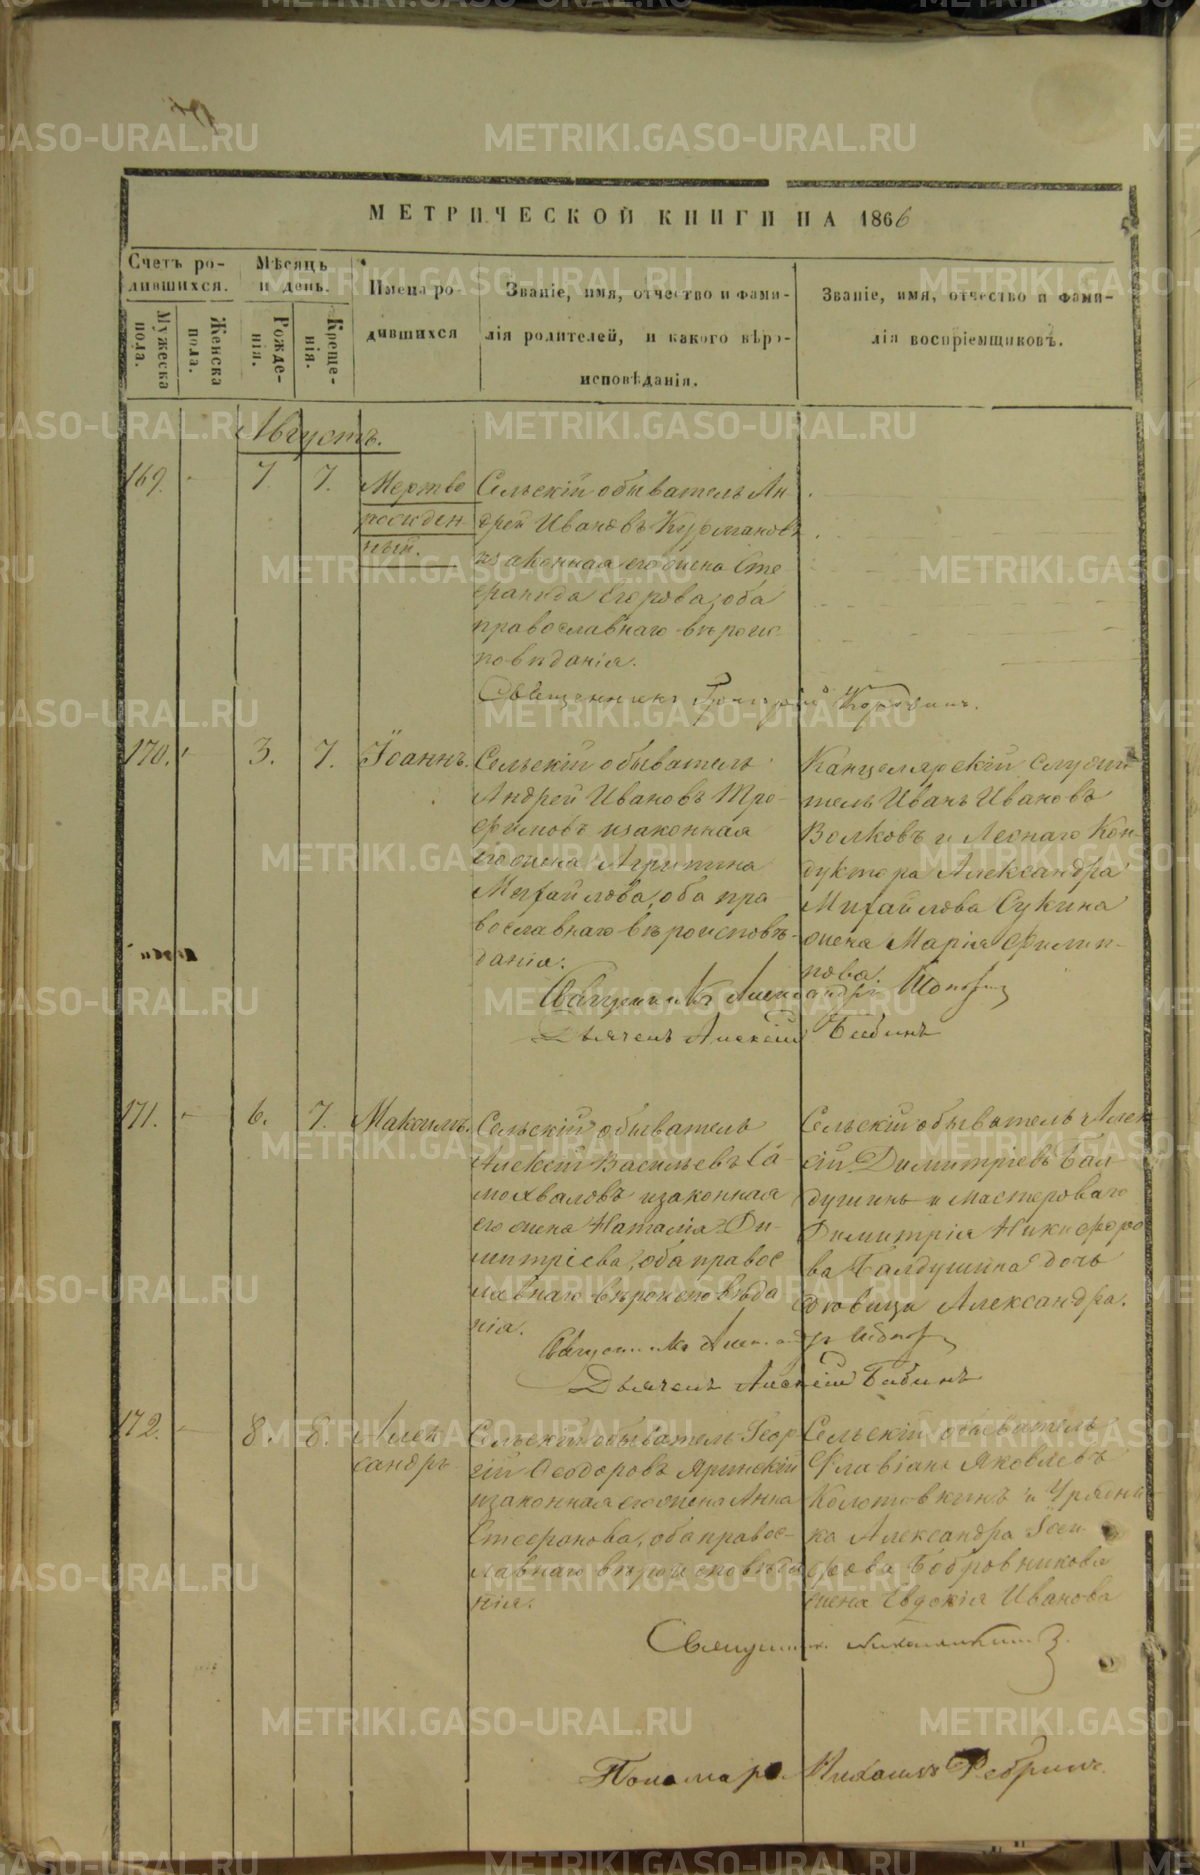 МЕТРИЧЕСКОЙ КНИГИ НА 1866
Счетъ ро-
дившихся.
Мужеска пола.
Женска пола.
Мѣсяцъ
и день.
Рожде-
нія.
Креще-
нія.
Имена ро-
дившихся
Званіе, имя, отчество и фами-
лія родителей, и какого вѣро-
исповѣданія.
Званіе, имя, отчество и фами-
лія воспріемщиковъ.
Августъ.
169. - 7. 7.
Мертво
рожден
ный.
Сельскій обыватель Ан
дрей Ивановъ Курмановъ
и законная его жена Сте
фанида Егорова, оба
православнаго вѣроис
повѣданія.
Священникъ Григорій
170. - 3. 7.
Іоаннъ.
Сельскій обыватель
Андрей Ивановъ Тро-
фимовъ и законная
его жена Агрипина
Михайлова, оба пра
вославнаго вѣроисповѣ-
данія.
Канцелярскій служи
тель Иванъ Ивановъ
Волковъ и Леснаго Кон-
дуктора Александра
Михайлова Сукина
жена Марія Филип-
пова.
Священникъ Александръ
Дьячекъ Алексій Бабинъ
171. - 6. 7.
Максимъ.
Сельскій обыватель
Алексій Васильевъ Са-
мохваловъ и законная
его жена Наталія Ди-
митріева, оба правос
лавнаго вѣроисповѣда
нія.
Сельскій обыватель Алек
сій Димитріевъ Бал-
душинъ и мастероваго
Димитрія Никифоро
ва Балдушина дочь
дѣвица Александра.
Священникъ Александръ
Дьячекъ Алексій Бабинъ
172. - 8. 8.
Алек
сандръ
Сельскій обыватель Геор
гій Ѳеодоровъ Яринскій
и законная его жена Анна
Стефанова, оба правос-
лавнаго вѣроисповѣда
нія.
Сельскій обыватель
Флавіанъ Яковлевъ
Колотовкинъ и Урядни-
ка Александра Іоси-
фова Бобровникова
жена Евдокія Иванова
Священникъ
Пономарь Николай Ребринъ
METRIKI.GASO-URAL.RU